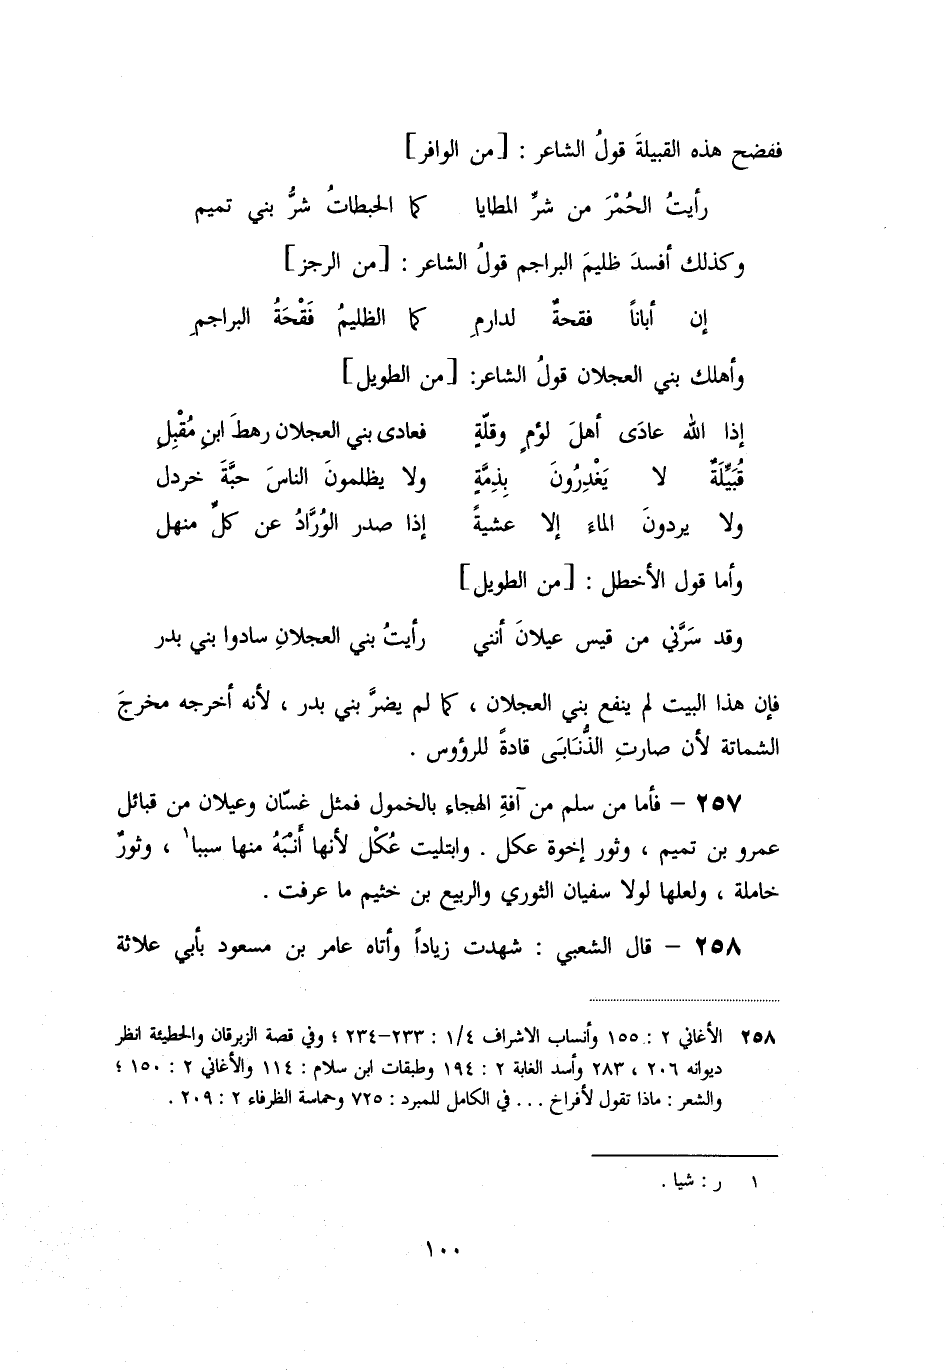 ففضح هذه القبيلةَ قولُ الشاعر : [من الوافر]
رأيتُ الحُمْرَ من شرِّ المطايا كما الحبطاتُ شرُّ بني تميم
وكذلك أفسدَ ظليمَ البراجم قولُ الشاعر : [من الرجز]
إن أباناً فقحةٌ لدارمِ كما الظليمُ فَقْحَةُ البراجمِ
وأهلك بني العجلان قولُ الشاعر: [من الطويل]
إذا الله عادَى أهلَ لؤمٍ وقلّةٍ فعادى بني العجلان رهطَ ابنِ مُقْبِلِ
قُبَيِّلَةٌ لا يَغْدِرُونَ بِذِمَّةٍ ولا يظلمونَ الناسَ حبَّةَ خردل
ولا يردونَ الماء إلا عشيةً إذا صدر الوُرَّادُ عن كلِّ منهل
وأما قول الأخطل : [من الطويل]
وقد سَرَّني من قيس عيلانَ أنني رأيتُ بني العجلانِ سادوا بني بدر
فإن هذا البيت لم ينفع بني العجلان ، كما لم يضرَّ بني بدر ، لأنه أخرجه مخرجَ
الشماتة لأن صارتِ الذُّنَابَى قادةً للرؤوس .
٢٥٧ – فأما من سلم من آفةِ الهجاء بالخمول فمثل غسّان وعيلان من قبائل
عمرو بن تميم ، وثور إخوة عكل . وابتليت عُكْل لأنها أَنْبَهُ منها سببا١ ، وثورٌ
خاملة ، ولعلها لولا سفيان الثوري والربيع بن خثيم ما عرفت .
٢٥٨ – قال الشعبي : شهدت زياداً وأتاه عامر بن مسعود بأبي علاثة
٢٥٨ الأغاني ٢ : ١٥٥ وأنساب الاشراف ١/٤ : ٢٣٣–٢٣٤ ؛ وفي قصة الزبرقان والحطيئة انظر
ديوانه ٢٠٦ ، ٢٨٣ وأسد الغابة ٢ : ١٩٤ وطبقات ابن سلام : ١١٤ والأغاني ٢ : ١٥٠ ؛
والشعر : ماذا تقول لأفراخ ... في الكامل للمبرد : ٧٢٥ وحماسة الظرفاء ٢ : ٢٠٩ .
١ ر : شيا .
١٠٠